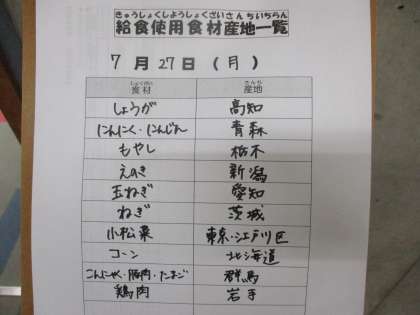 きゅうしょくしようしょくざいさんちいちらん
給食使用食材産地一覧
7月27日(月)
しょくざい さんち
食材 産地
しょうが 高知
にんにく・にんじん 青森
もやし 栃木
えのき 新潟
玉ねぎ 愛知
ねぎ 茨城
小松菜 東京・江戸川区
コーン 北海道
こんにゃく・豚肉・たまご 群馬
鶏肉 岩手